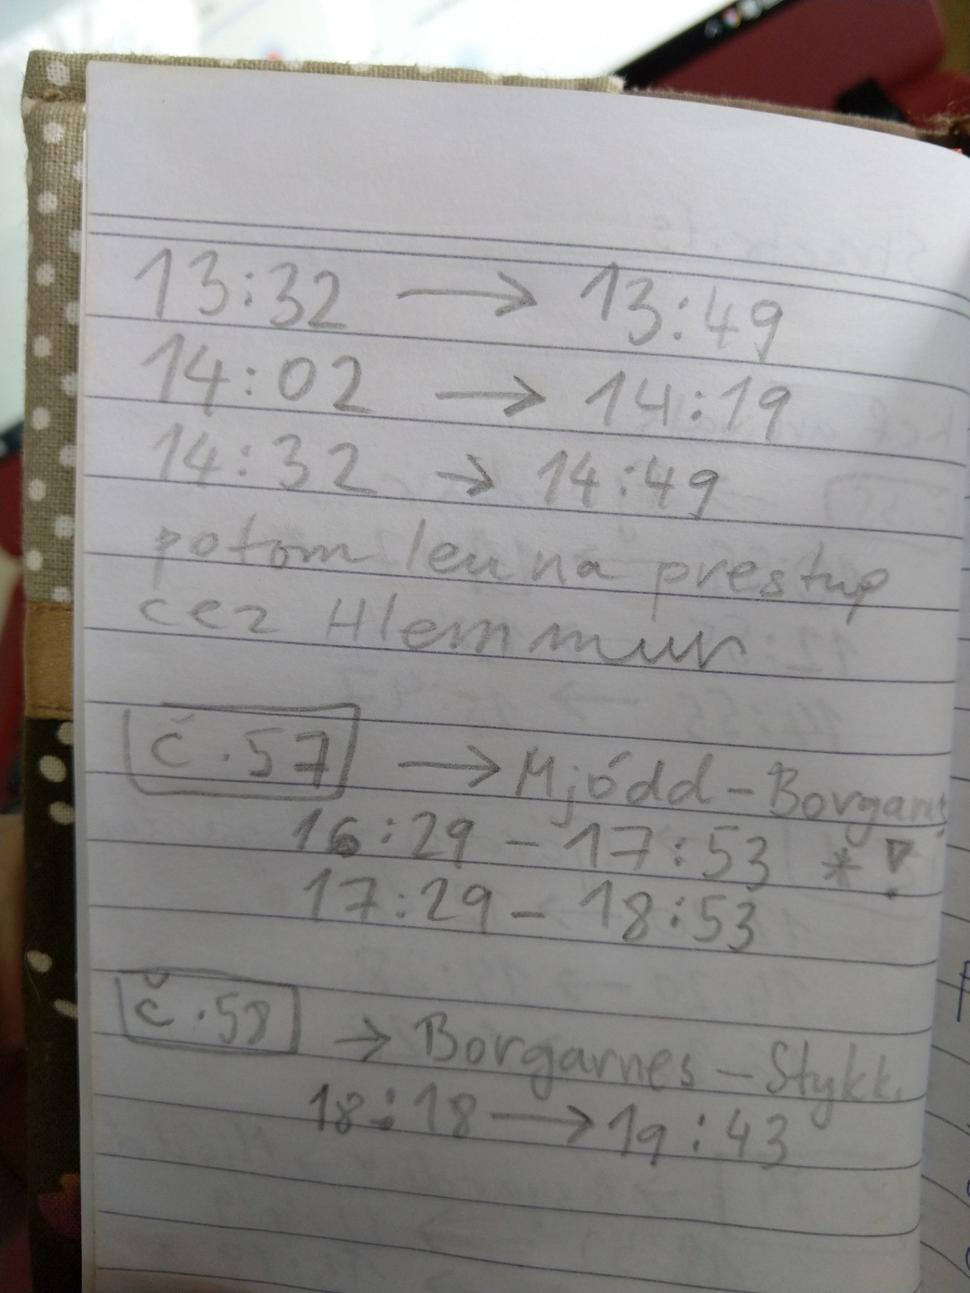 13:32 → 13:49
14:02 → 14:19
14:32 → 14:49
potom len na prestup
cez Hlemmur
č.57 → Mjódd – Borgarn.
16:29 – 17:53 * !
17:29 – 18:53
č.58 → Borgarnes – Stykk.
18:18 → 19:43